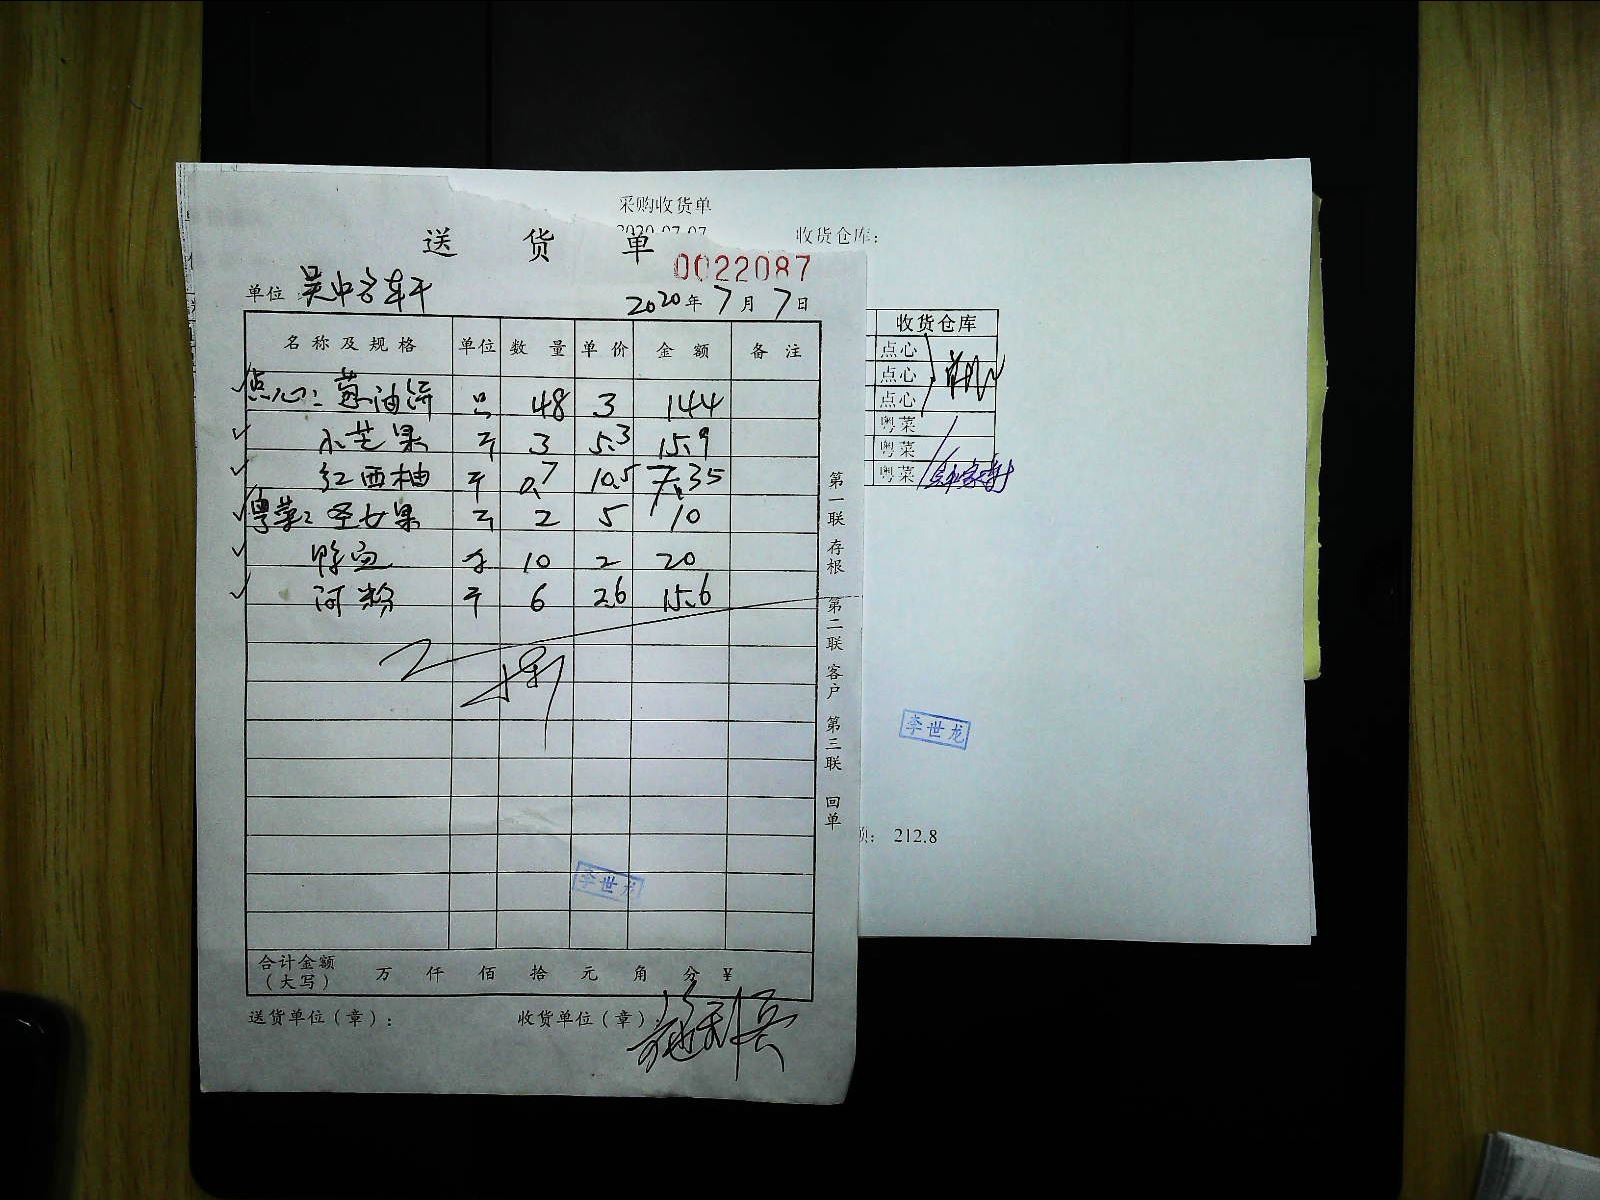 采购收货单
收货仓库：
送货单
0022087
单位 吴中
2020年7月7日
名称及规格 单位 数量 单价 金额 备注
点心： 葱油饼 只 48 3 144
小芒果 斤 3 5.3 15.9
红西柚 斤 0.7 10.5 7.35
粤菜： 圣女果 斤 2 5 10
鸭血 10 2 20
河粉 斤 6 2.6 15.6
合计金额（大写） 万 仟 佰 拾 元 角 分 ¥
送货单位（章）： 收货单位（章）：
第一联 存根 第二联 客户 第三联 回单
李世龙
收货仓库
点心
点心
点心
粤菜
粤菜
粤菜
李世龙
212.8